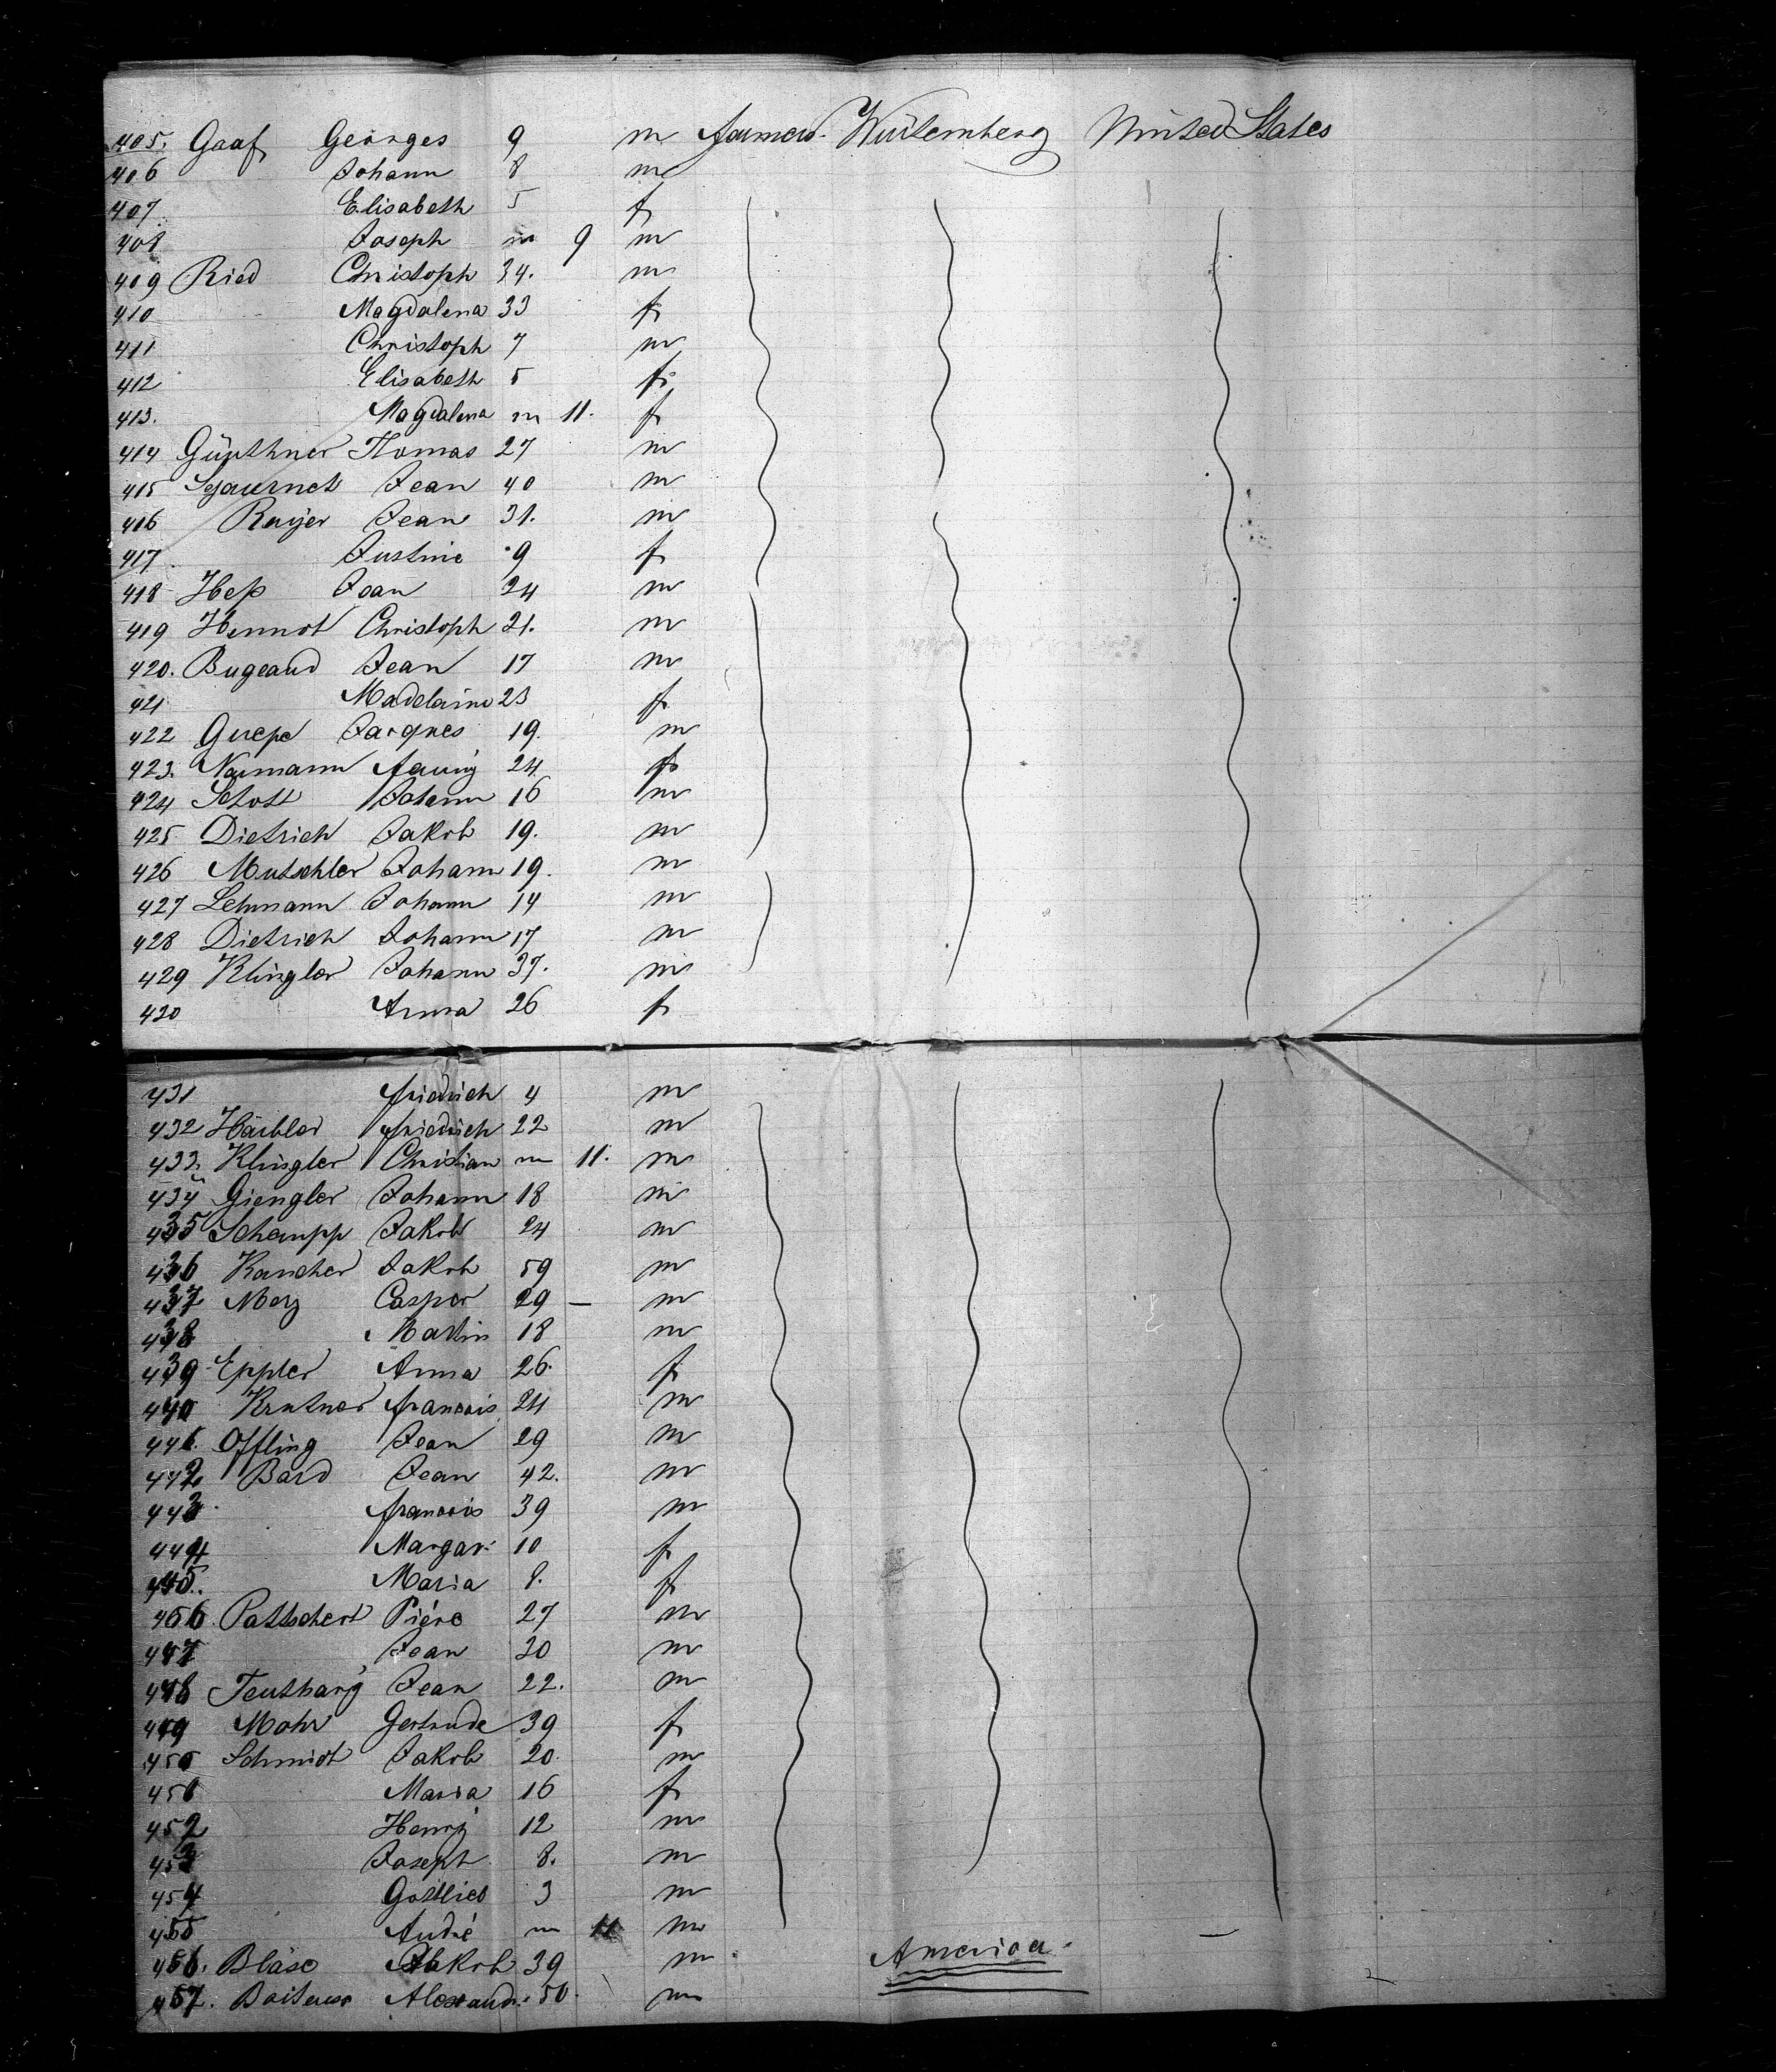 405. Gaaf Georges 9 m farmer Würtemberg United States
406 Johann 8 m
407 Elisabeth 5 f
408 Joseph m 9 m
409 Ried Christoph 34. m
410 Magdalena 33 f
411 Christoph 7 m
412 Elisabeth 5 f
413. Magdalena m 11. f
414 Güpthner Thomas 27 m
415 Jean 40 m
416 Rayer Jean 31. m
417 Justine 9 f
418 Heß Jean 24 m
419 Hennot Christoph 21. m
420. Bugeaud Jean 17 m
421 Madelaine 23 f
422 Guepe Jacques 19. m
423. Naumann 24 f
424 Schott Johann 16 m
425 Dietrich Jakob 19. m
426 Mutschler Johann 19. m
427 Lehmann Johann 14 m
428 Dietrich Johann 17 m
429 Klingler Johann 37. m
430 Anna 26 f
431 friedrich 4 m
432 Häibler friedrich 22 m
433. Klingler Christian m 11. m
434 Giengler Johann 18 m
435 Schempp Jakob 24 m
436 Kancher Jakob 59 m
437 Merz Casper 29 – m
438 Martin 18 m
439 Eppler Anna 26. f
440 Krutner francois 24 m
441. Offling Jean 29 m
442 Bard Jean 42. m
443 francois 39 m
444 Margar. 10 f
445. Maria 8. f
456. Pattschert Piére 27 m
447 Jean 20 m
448 Teuthany Jean 22. m
449 Mohr Gertrude 39 f
450 Schmidt Jakob 20. m
451 Maria 16 f
452 Henry 12 m
453 Joseph 8. m
454 Gottlieb 3 m
455 André m 11 m –
456. Bläse Jakob 39 m America.
457. Alexandr. 50. m